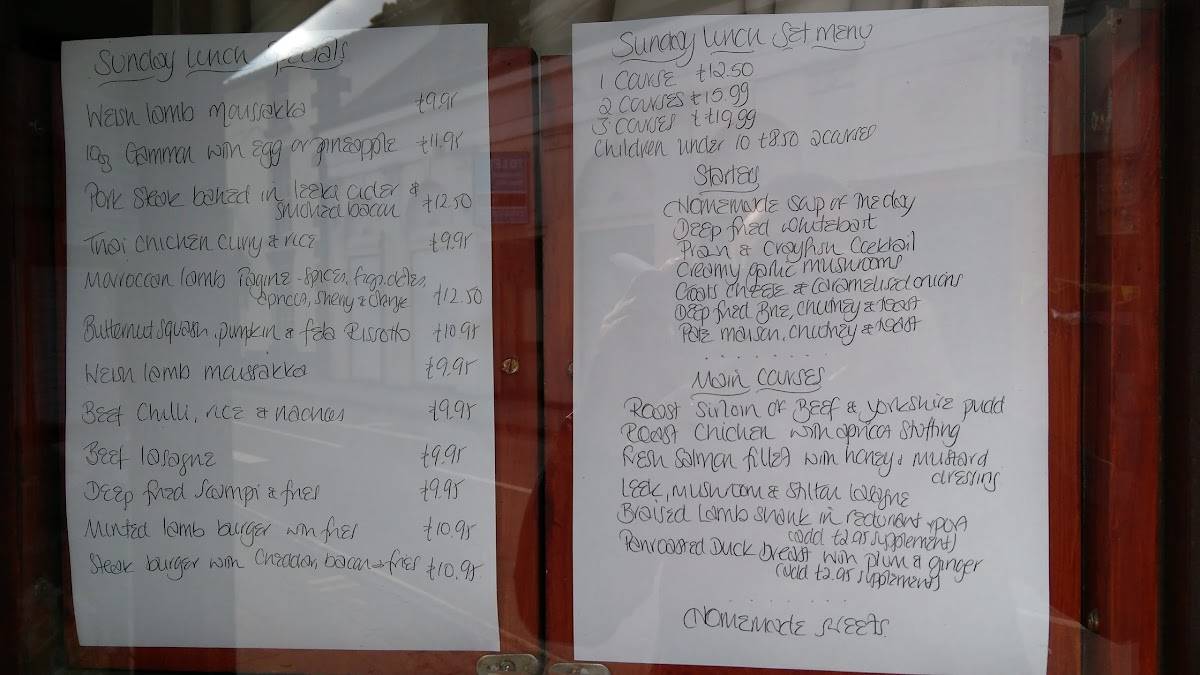 Sunday Lunch Specials
Welsh lamb Moussakka £9.95
10oz Gammon with egg or pineapple £11.95
Pork Steak baked in leeks, cider &
smoked bacon £12.50
Thai chicken curry & rice £9.95
Maroccan lamb Tagine - spices, figs, dates,
apricots, sherry & orange £12.50
Butternut squash, pumpkin & feta Rissotto £10.95
Welsh lamb moussakka £9.95
Beef Chilli, rice & nachos £9.95
Beef lasagne £9.95
Deep fried Scampi & fries £9.95
Minted lamb burger with fries £10.95
Steak burger with Cheddar, bacon & fries £10.95
Sunday Lunch Set menu
1 course £12.50
2 courses £15.99
3 courses £19.99
Children under 10 £8.50 2 courses
Starters
Homemade soup of the day
Deep fried whitebait
Prawn & Crayfish Cocktail
Creamy garlic mushrooms
Goats cheese & caramelised onions
Deep fried Brie, chutney & toast
Pate maison, chutney & toast
Main Courses
Roast Sirloin of Beef & Yorkshire pudd
Roast Chicken with apricot stuffing
Fresh Salmon fillet with honey & mustard
dressing
Leek, mushroom & Stilton lasagne
Braised Lamb shank in redcurrant & port
(add £2.95 supplement)
Panroasted Duck breast with plum & ginger
(add £2.95 supplement)
Homemade sweets